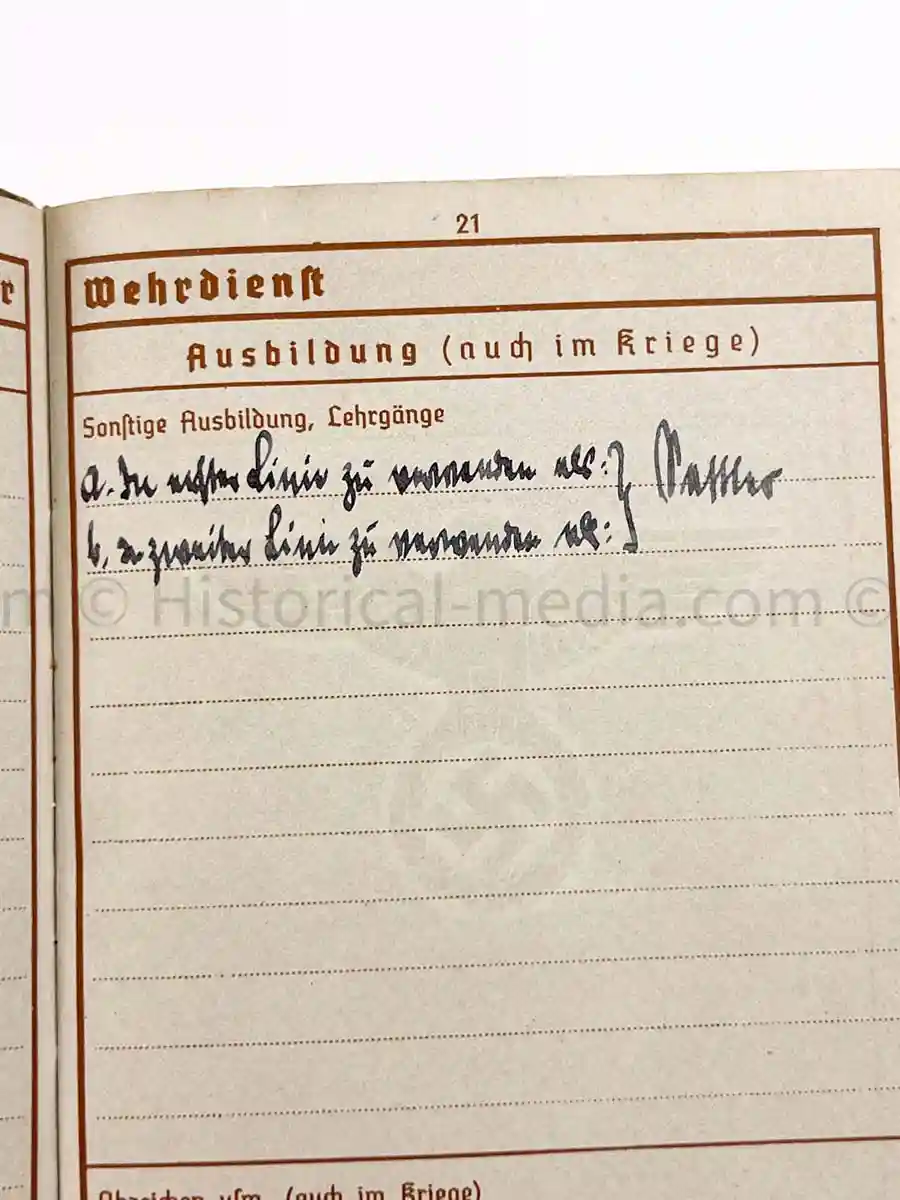 21
r
Wehrdienst
Ausbildung (auch im Kriege)
Sonstige Ausbildung, Lehrgänge
a. In erster Linie zu verwenden als: } Sattler
b. In zweiter Linie zu verwenden als:
m © Historical-media.com ©
Abzeichen usw. (auch im Kriege)